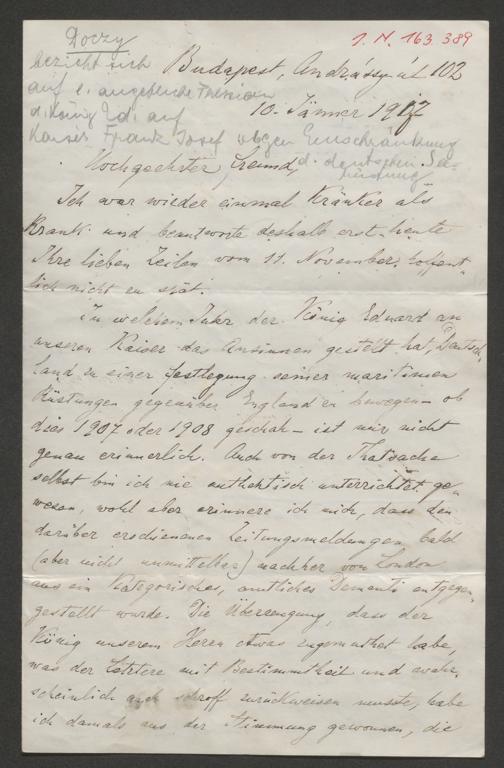 Doczy
I. N. 163.389
bezieht sich
auf e. angebliche Pression
d. König Ed. auf
Kaiser Franz Josef wegen Einschränkung
d. deutschen See-
rüstung
Budapest, Andrássy út 102
10. Jänner 1917
Hochgeehrter Freund,
Ich war wieder einmal kränker als
krank und beantworte deshalb erst heute
Ihre lieben Zeilen vom 11. November, hoffent-
lich nicht zu spät.
In welchem Jahr der König Eduard an
unseren Kaiser das Ansinnen gestellt hat, Deutsch-
land zu einer Festlegung seiner maritimen
Rüstungen gegenüber England zu bewegen – ob
dies 1907 oder 1908 geschah – ist mir nicht
genau erinnerlich. Auch von der Thatsache
selbst bin ich nie authentisch unterrichtet ge-
wesen, wohl aber erinnere ich mich, dass den
darüber erschienenen Zeitungsmeldungen bald
(aber nicht unmittelbar) nachher von London
aus ein kategorisches, amtliches Dementi entgegen-
gestellt wurde. Die Überzeugung, dass der
König unserem Herrn etwas zugemuthet habe,
was der Letztere mit Bestimmtheit und wahr-
scheinlich auch schroff zurückweisen musste, habe
ich damals aus der Stimmung gewonnen, die